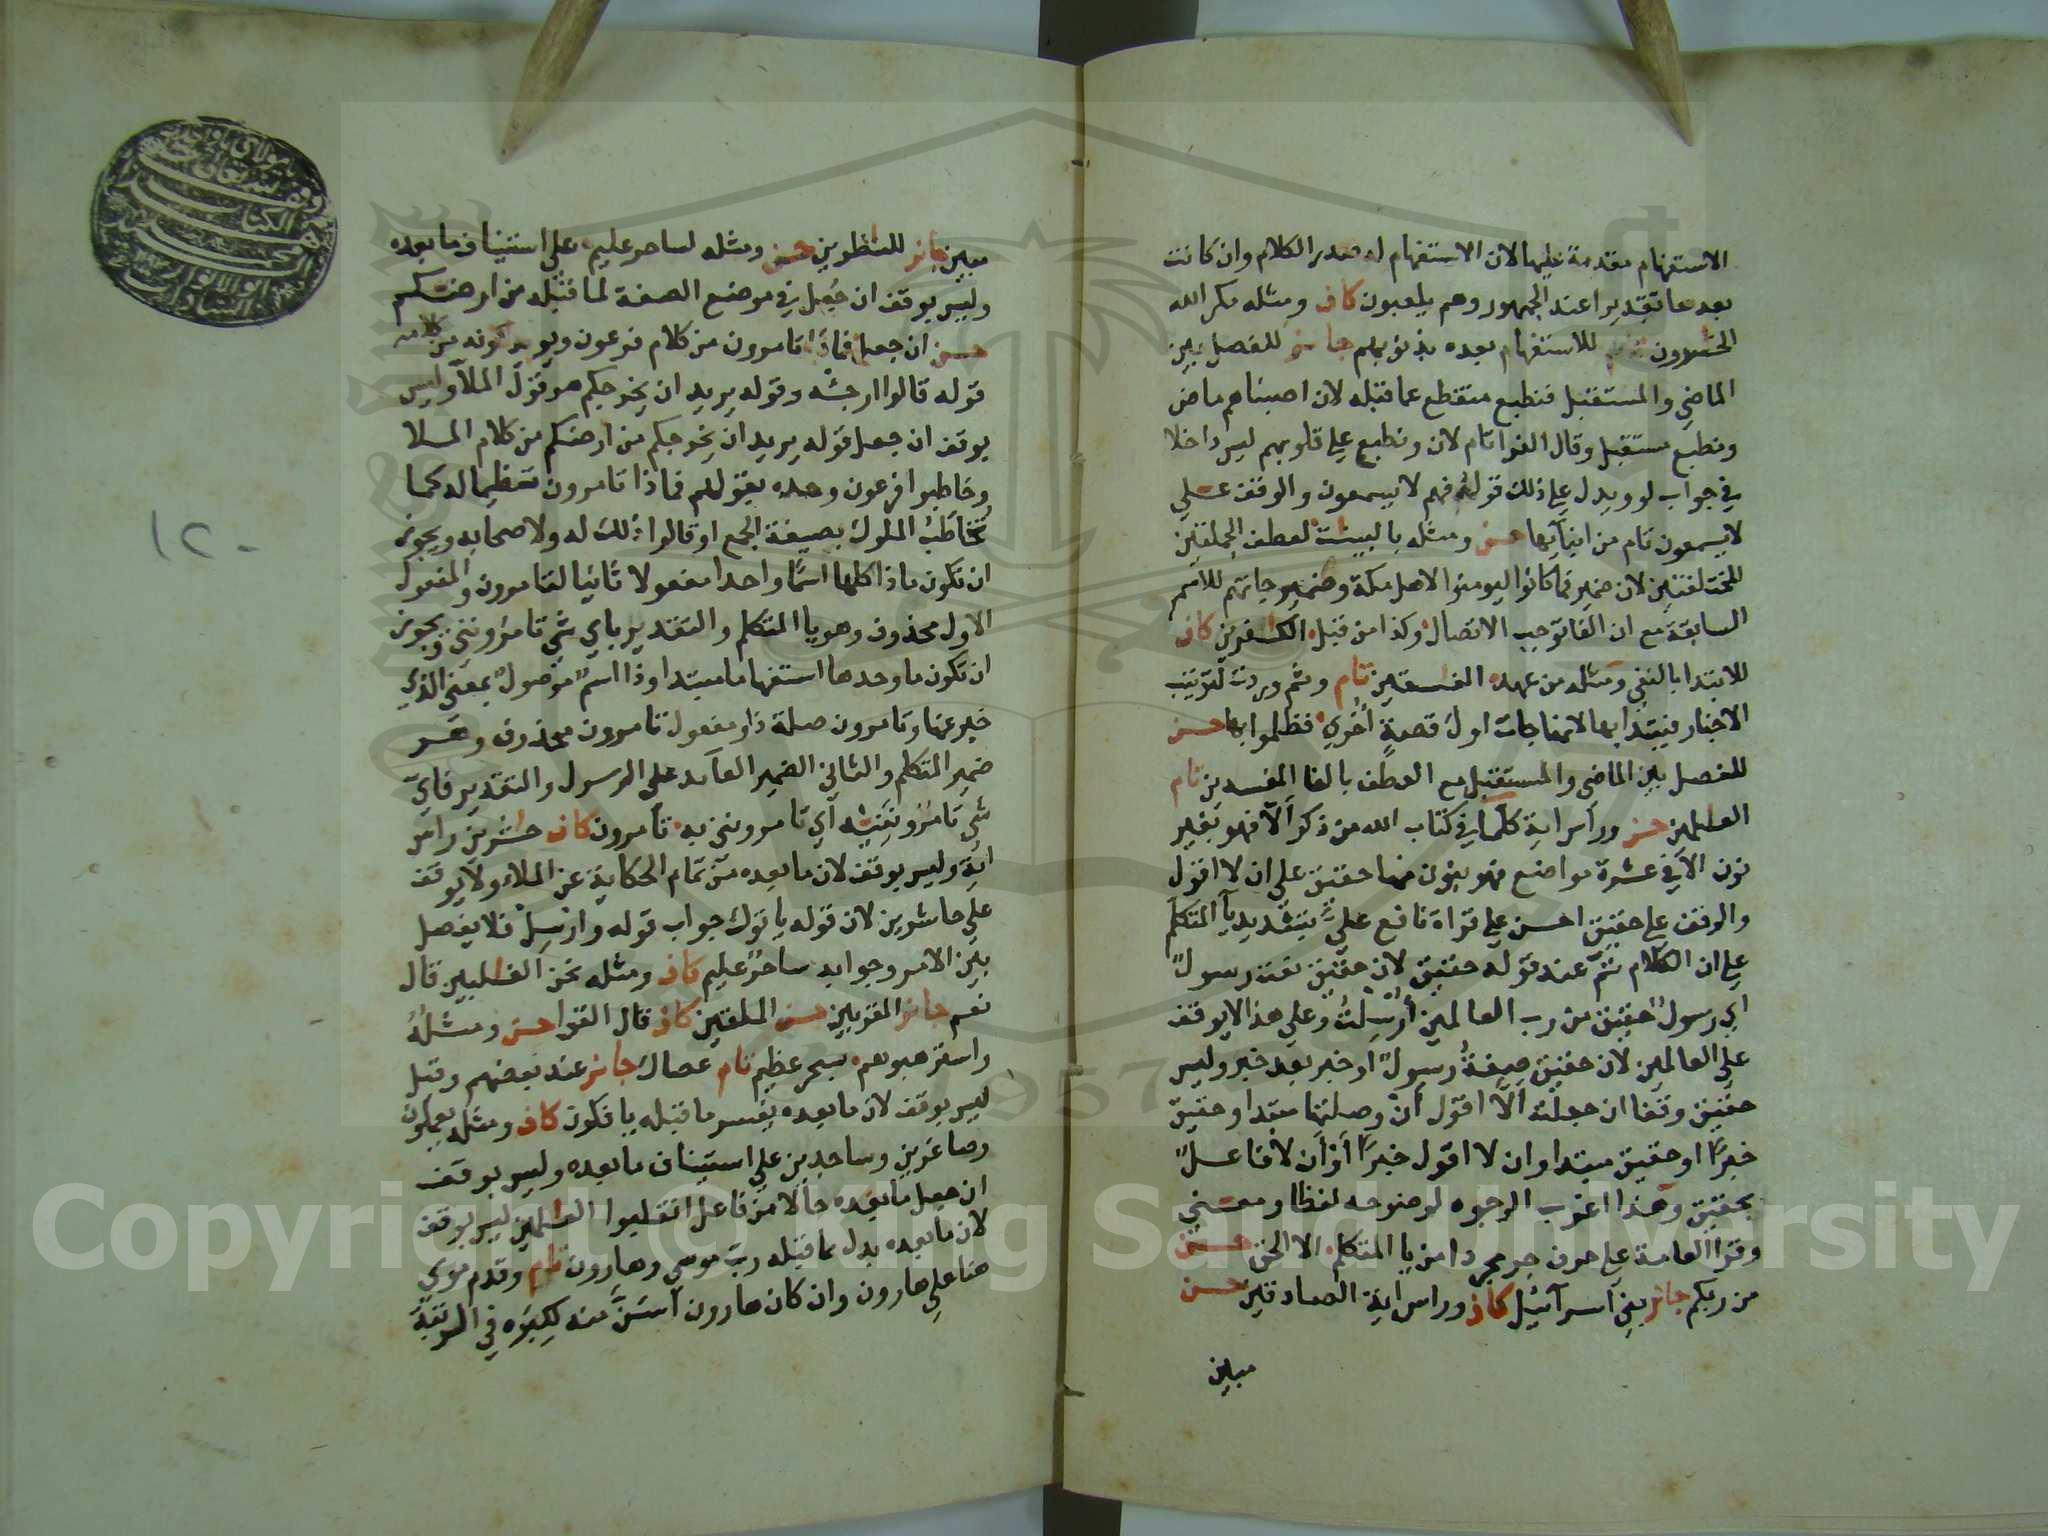 الاستفهام مقدمة عليها لان الاستفهام له صدر الكلام وان كانت
بعدها تقديرا عند الجمهور وهم يلعبون كاف ومثله مكر الله
الخسرون تام للاستفهام بعده بذنوبهم جائز للفصل بين
الماضي والمستقبل فنطبع منقطع عما قبله لان اصبناهم ماض
ونطبع مستقبل وقال الفرا تام لان ونطبع على قلوبهم ليس داخلا
في جواب لو ويدل على ذلك قوله فهم لا يسمعون والوقف على
لا يسمعون تام من انبآيها حسن ومثله بالبينت لعطف الجملتين
المختلفتين لان ضمير فما كانوا ليومنوا لاهل مكة وضمير جاتهم للامم
السابقة مع ان الفا توجب الاتصال وكذا من قبل الكفرين كاف
للابتدا بالنفي ومثله من عهد الفسقين تام وثم وردت لترتيب
الاخبار فيبتدا بها لانها جات اول قصة اخرى فظلموا بها حسن
للفصل بين الماضي والمستقبل مع العطف بالفا المفسدين تام
العلمين حسن وراس اية كلما في كتاب الله من ذكر ألا فهو بغير
نون الا في عشرة مواضع فهو بنون منها حقيق على ان لا اقول
والوقف على حقيق احسن على قراة نافع عليّ بتشديد يآ المتكلم
على ان الكلام تمّ عند قوله حقيق لان حقيق نعت رسول
اي رسول حقيق من رب العالمين أرسلت وعلى هذا لا يوقف
على العالمين لان حقيق صفة رسول او خبر بعد خبر وليس
حقيق وقفا ان جعلت ألا اقول أن وصلتها مبتدا وحقيق
خبرا او حقيق مبتدا وان لا اقول خبرا أو أن لا فاعل
بحقيق وهذا اعرب الوجوه لوضوحه لفظا ومعنى
وقرا العامة على حرف جر مجردا من يا المتكلم الا الحق حسن
من ربكم جائز بني اسرآئيل كاف وراس اية الصادقين حسن
مبين
مبين جائز للنظرين حسن ومثله لساحر عليم على استيناف ما بعده
وليس بوقف ان جعل في موضع الصفة لما قبله من ارضكم
حسن ان جعل فماذا تامرون من كلام فرعون ويويد كونه من كلامه
قوله قالوا ارجئه وقوله يريد ان يخرجكم هو قول الملأ وليس
بوقف ان جعل قوله يريد ان يخرجكم من ارضكم من كلام الملا
وخاطبوا فرعون وحده بقولهم فماذا تامرون تعظيما له كما
تخاطب الملوك بصيغة الجمع او قالوا ذلك له ولاصحابه ويجوز
ان تكون ماذا كلها اسما واحدا مفعولا ثانيا لتامرون والمفعول
الاول محذوف وهو يا المتكلم والتقدير باي شي تامرونني ويجوز
ان تكون ما وحدها استفهاما مبتدا وذا اسم موصول بمعنى الذي
خبر عنها وتامرون صلة ذا ومفعول تامرون محذوف وهو
ضمير المتكلم والثاني الضمير العآيد على الرسول والتقدير فاي
شي تامرونيه اي تامرونني به تامرون كاف حشرين راس
اية وليس بوقف لان ما بعده من تمام الحكاية عن الملاء ولا يوقف
على حاشرين لان قوله ياتوك جواب قوله وارسل فلا يفصل
بين الامر وجوابه ساحر عليم كاف ومثله نحن الغلبين قال
نعم جائز المقربين حسن الملقين كاف قال القوا حسن ومثله
واسترهبوهم بسحر عظيم تام عصاك جائز عند بعضهم وقيل
ليس بوقف لان ما بعده يفسر ما قبله يافكون كاف ومثله يعملون
وصاغرين وساجدين على استيناف ما بعده وليس بوقف
ان جعل ما بعده حالا من فاعل انقلبوا العلمين ليس بوقف
لان ما بعده بدل مما قبله رب موسى وهارون تام وقدم موسى
هنا على هارون وان كان هارون اسنّ منه لكبره في الرتبة
١٢٠
وقف
الكتاب